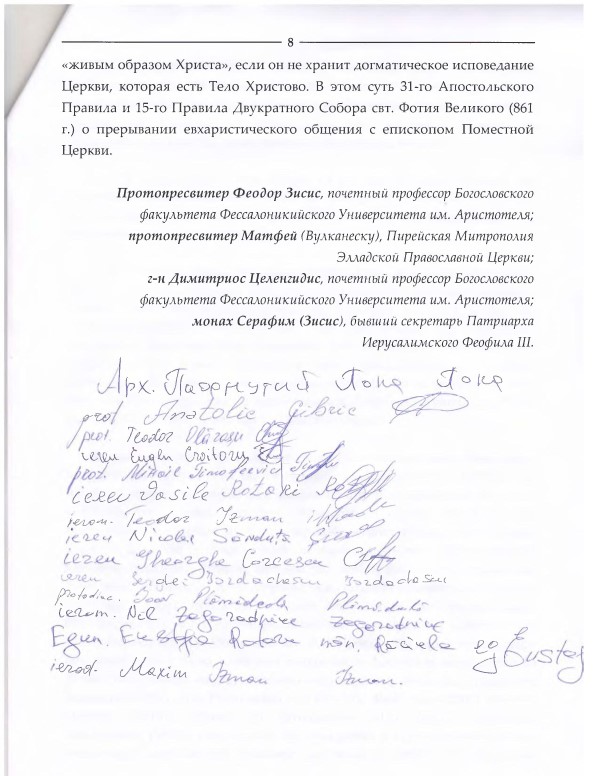 8
«живым образом Христа», если он не хранит догматическое исповедание
Церкви, которая есть Тело Христово. В этом суть 31-го Апостольского
Правила и 15-го Правила Двукратного Собора свт. Фотия Великого (861
г.) о прерывании евхаристического общения с епископом Поместной
Церкви.
Протопресвитер Феодор Зисис, почетный профессор Богословского
факультета Фессалоникийского Университета им. Аристотеля;
протопресвитер Матфей (Вулканеску), Пирейская Митрополия
Элладской Православной Церкви;
г-н Димитриос Целенгидис, почетный профессор Богословского
факультета Фессалоникийского Университета им. Аристотеля;
монах Серафим (Зисис), бывший секретарь Патриарха
Иерусалимского Феофила III.
Арх. Пафнутий
prot Anatolie Cibric
prot. Teodor
ierеu Eugen Croitoru
prot. Mihail Timofeevici
iereu Vasile Rotari
ierom. Teodor Izman
iereu Nicolae Sănduță
iereu Gheorghe
iereu Serghei
protodiac. Ioan Plămădeală
ierom. Nil Zagorodnîive
mân. Răciula
ierod. Maxim Izman Izman.